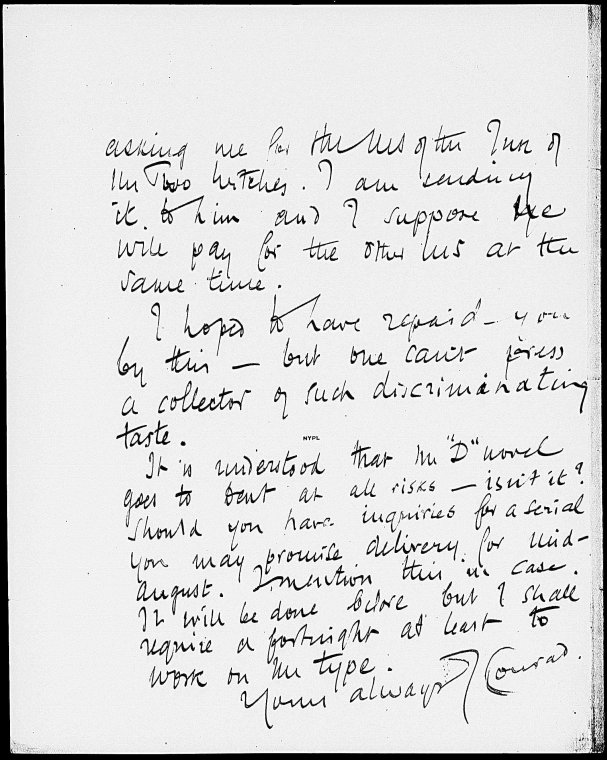 asking me for the MS of the Inn of
the Two Witches. I am sending
it to him and I suppose he
will pay for the other MS at the
same time.
I hoped to have repaid you
by this — but one can't press
a collector of such discriminating
taste.
NYPL
It is understood that the "D" novel
goes to Dent at all risks — isn't it?
Should you have inquiries for a serial
you may promise delivery for mid-
august. I mention this in case.
It will be done before but I shall
require a fortnight at least to
work on the type.
Yours always J Conrad.